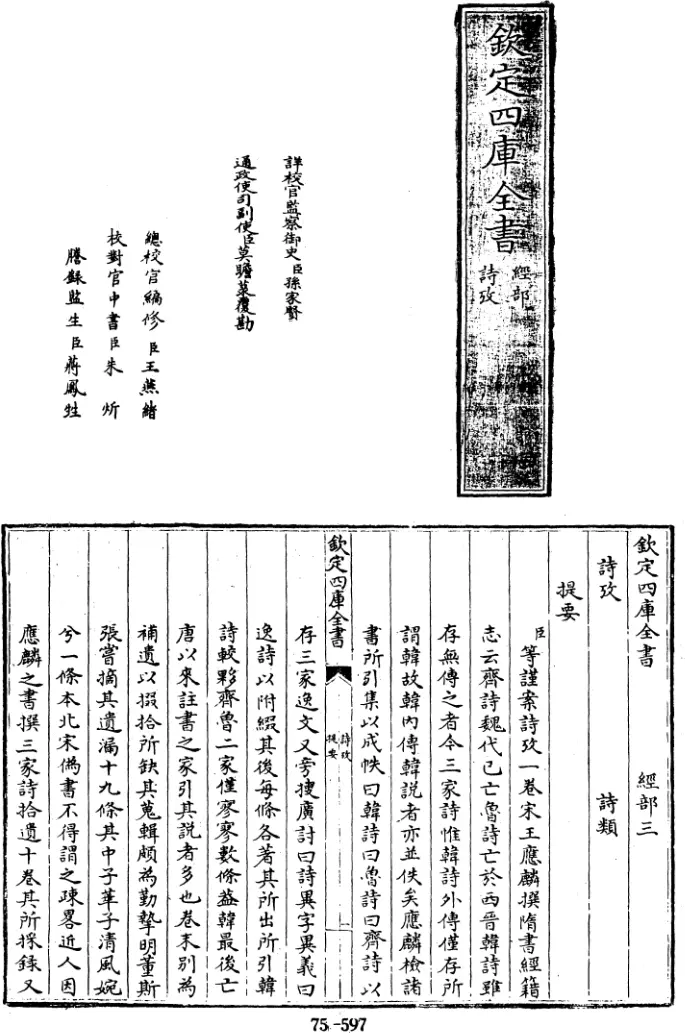 欽定四庫全書
經部
詩攷
詳校官監察御史臣孫家賢
通政使司副使臣莫瞻菉覆勘
總校官編修臣王燕緒
校對官中書臣朱炘
謄錄監生臣蔣鳳甡
欽定四庫全書 經部三
詩攷 詩類
提要
臣等謹案詩攷一卷宋王應麟撰隋書經籍
志云齊詩魏代已亡魯詩亡於西晉韓詩雖
存無傳之者今三家詩惟韓詩外傳僅存所
謂韓故韓內傳韓說者亦並佚矣應麟檢諸
書所引集以成帙曰韓詩曰魯詩曰齊詩以
欽定四庫全書
詩攷
提要
一
存三家逸文又旁搜廣討曰詩異字異義曰
逸詩以附綴其後每條各著其所出所引韓
詩較夥齊魯二家僅寥寥數條葢韓最後亡
唐以來註書之家引其說者多也卷末別為
補遺以掇拾所缺其蒐輯頗為勤摯明董斯
張嘗摘其遺漏十九條其中子華子清風婉
兮一條本北宋偽書不得謂之疎畧近人因
應麟之書撰三家詩拾遺十卷其所採錄又
75-597